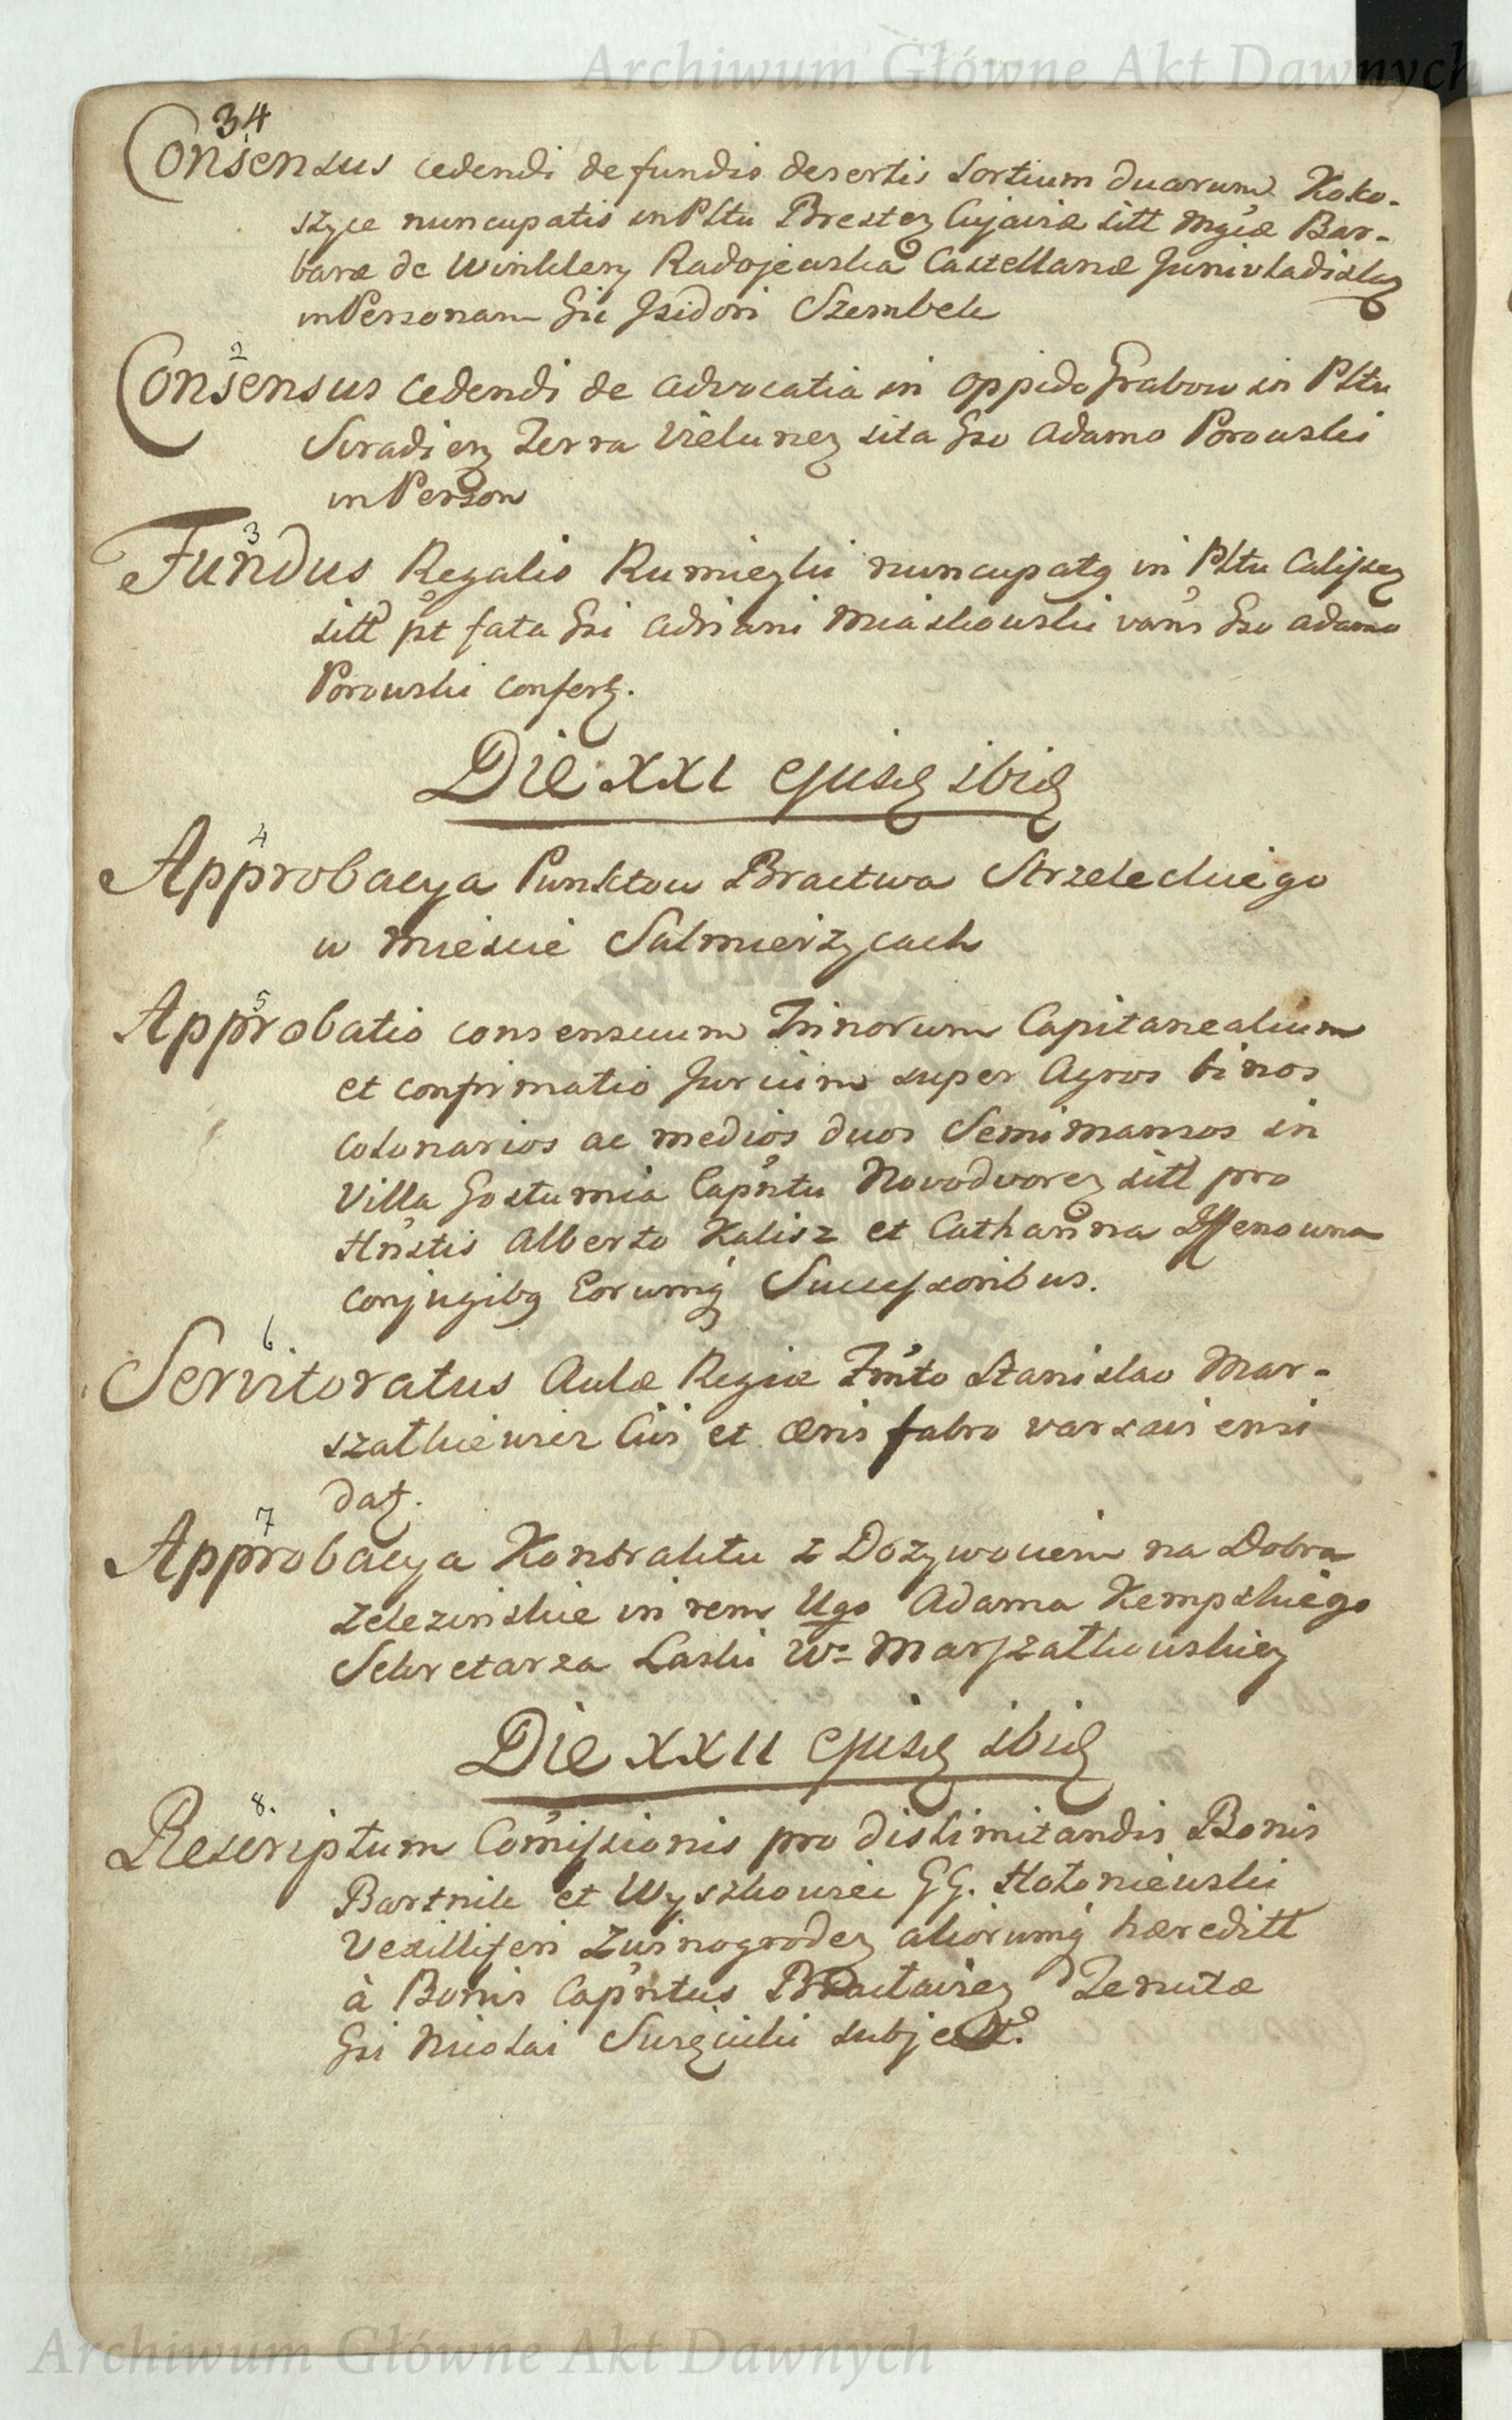 Archiwum Główne Akt Dawnych
34
Consensus cedendi de fundis desertis sortium duarum Koko-
szyce nuncupatis in Pltu Bresten Cujaviæ sitt Mgcæ Bar-
baræ de Winklery Radojewska Castellanæ Junivladisla
in Personam Gu Isidori Szembek
2
Consensus cedendi de advocatia in oppido Grabow in Pltu
Siradien Terra Vielunen sita Gso Adamo Porowski
in Person
3
Fundus Regalis Rumieyki nuncupatq in Pltu Calissen
sitt pt fata Gsi Adriani Miaskowski vans Gso Adamo
Porowski confert.
Die XXI ejusd ibid
4
Approbacya Punktow Bractwa Strzeleckiego
w miescie Sulmierzycach
5
Approbatio consensuum Trinorum Capitanealium
et confirmatio Jurium super Agros binos
colonarios ac medios duos Semimansos in
Villa Gostumia Capntu Novodvoren sitt pro
Hnstis Alberto Kalisz et Catharina
conjugibq Eorumq Successoribus.
6
Servitoratus Aulæ Regiæ Fmto Stanislao Mar-
szatkiewicz Civi et æris fabro varsaviensi
dat.
7
Approbacya Kontraktu z Dozywociem na Dobra
Zelezinskie in rem Ugo Adama Kempskiego
Sekretarza Laski W. Marszatkowskiey
Die XXII ejusd ibid
8.
Rescriptum Comissionis pro dislimitandis Bonis
Bartnik et Wyszkowce GG. Hotoniewski
Vexilliferi Zwinogroden aliorumq hæreditt
à Bonis Capntus Tenutæ
Gsi Nicolai subject.
Archiwum Główne Akt Dawnych